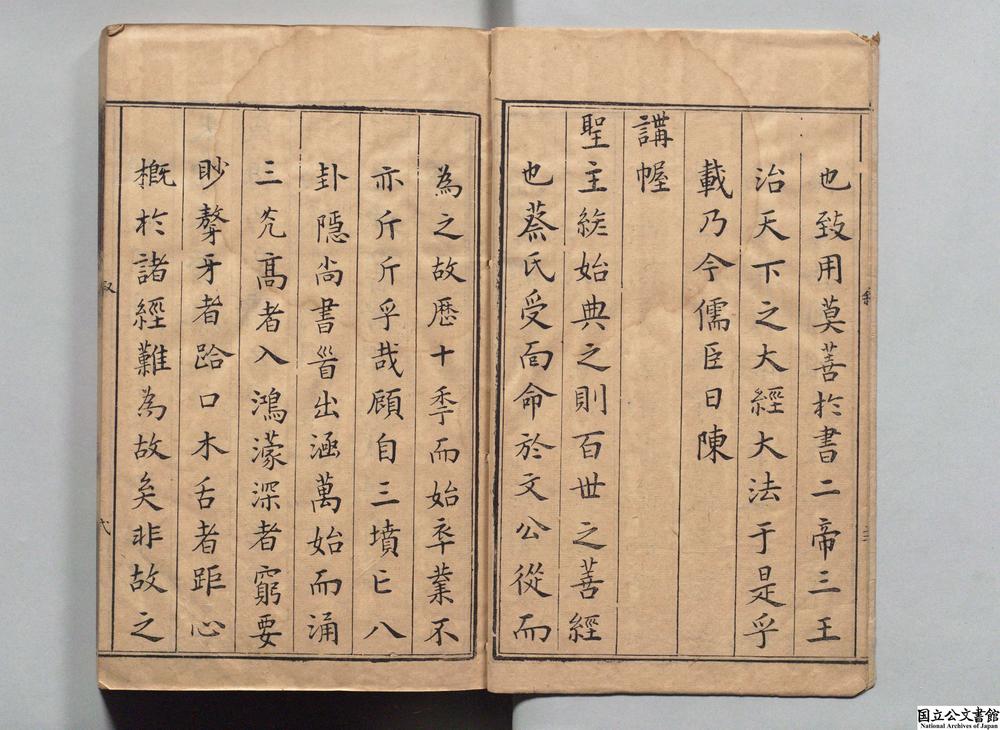 也致用莫善於書二帝三王
治天下之大經大法于是乎
載乃今儒臣日陳
講幄
聖主終始典之則百世之善經
也蔡氏受靣命於文公從而
為之故歷十秊而始卒業不
亦斤斤乎哉顧自三墳亡八
卦隱尚書首出涵萬始而涌
三光高者入鴻濛深者窮要
眇聱牙者跲口木舌者距心
概於諸經難為故矣非故之
国立公文書館
National Archives of Japan